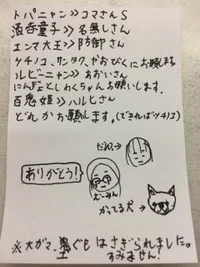 トパニャン≫コマさんS
酒呑童子≫名無しさん
エンマ大王≫防御さん
ツチノコ、ワンタク、やおびくにお願いします
ルビーニャン≫あおいさん
にんぎょとしわくちゃんお願いします。
百鬼姫≫ハルヒさん
どれかお願します。(できればツチノコ)
だれ→
ありがとう!
むーみん
かってる犬→
※大ガマ、土ぐもはさぎられました。
すみません!